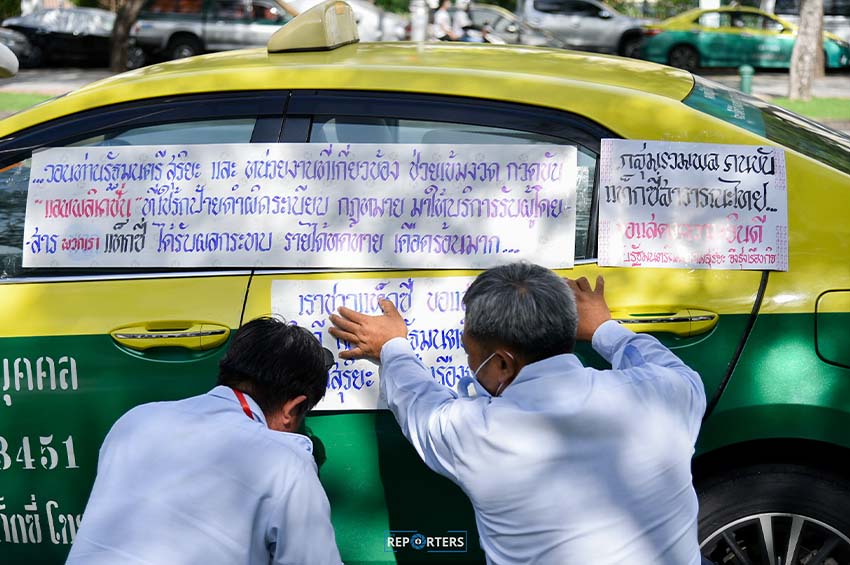 ...วอนท่านรัฐมนตรี สุริยะ และ หน่วยงานที่เกี่ยวข้อง ช่วยเข้มงวด กวดขัน
"แอพพลิเคชั่น" ที่ใช้รถป้ายดำผิดระเบียบ กฎหมาย มาให้บริการรับผู้โดย-
-สาร พวกเรา แท็กซี่ ได้รับผลกระทบ รายได้หดหาย เดือดร้อนมาก...
กลุ่มรวมพล คนขับ
แท็กซี่สาธารณะไทย...
ขอแสดงความยินดี
เราชาวแท็กซี่ ขอ
สุริยะ
บุคคล
3451
REPORTERS